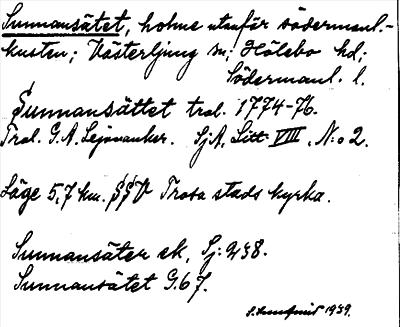 Sunnansätet, holme utanför södermanl.-
kusten; Västerljung sn; Hölebo hd;
Södermanl. l.
Sunnansättet trol. 1774-76.
Trol. G.A. Lejonanker. SjA. Litt. VIII, N:o 2.
Läge 5,7 km. SSV Trosa stads kyrka.
Sunnansäter ek, Sj: 238.
Sunnansätet G.67.
1939.